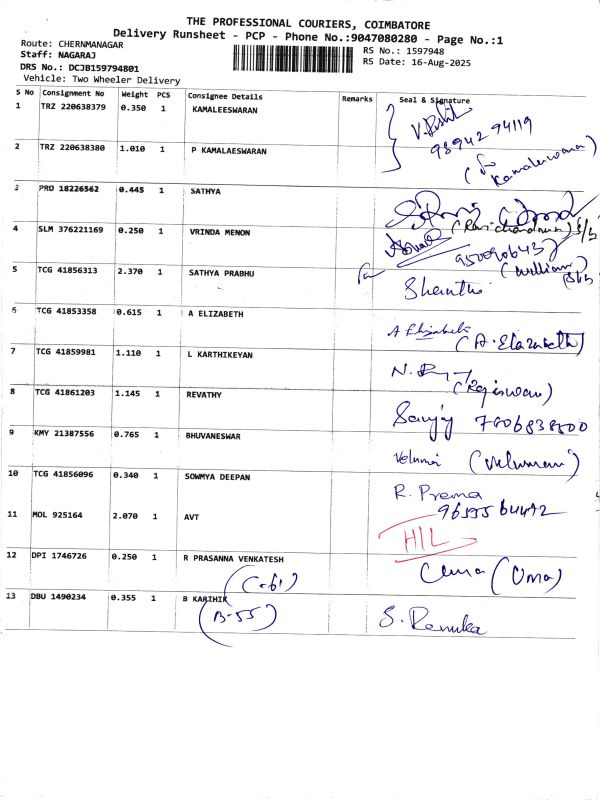 THE PROFESSIONAL COURIERS, COIMBATORE
Delivery Runsheet - PCP - Phone No.:9047080280 - Page No.:1
Route: CHERNMANAGAR
Staff: NAGARAJ
DRS No.: DCJB159794801
Vehicle: Two Wheeler Delivery
RS No.: 1597948
RS Date: 16-Aug-2025
S No Consignment No Weight PCS Consignee Details Remarks Seal & Signature
1 TRZ 220638379 0.350 1 KAMALEESWARAN
98942 94119
2 TRZ 220638380 1.010 1 P KAMALAESWARAN
(for Kamaleswaran)
3 PRO 18226562 0.445 1 SATHYA
4 SLM 376221169 0.250 1 VRINDA MENON
(Ravichandran) S/S
(William)
5 TCG 41856313 2.370 1 SATHYA PRABHU
Shanthi
6 TCG 41853358 0.615 1 A ELIZABETH
A Elizabeth (A. Elazabeth)
7 TCG 41859981 1.110 1 L KARTHIKEYAN
(Rajeswari)
8 TCG 41861203 1.145 1 REVATHY
Sanjay 7606838500
9 KMY 21387556 0.765 1 BHUVANESWAR
Velumani (Velumani)
10 TCG 41856096 0.340 1 SOWMYA DEEPAN
R. Prema
11 MOL 925164 2.070 1 AVT
H/L
12 DPI 1746726 0.250 1 R PRASANNA VENKATESH
(C-61)
Uma (Uma)
13 DBU 1490234 0.355 1 B KARIHIK
(B-55)
S. Renuka